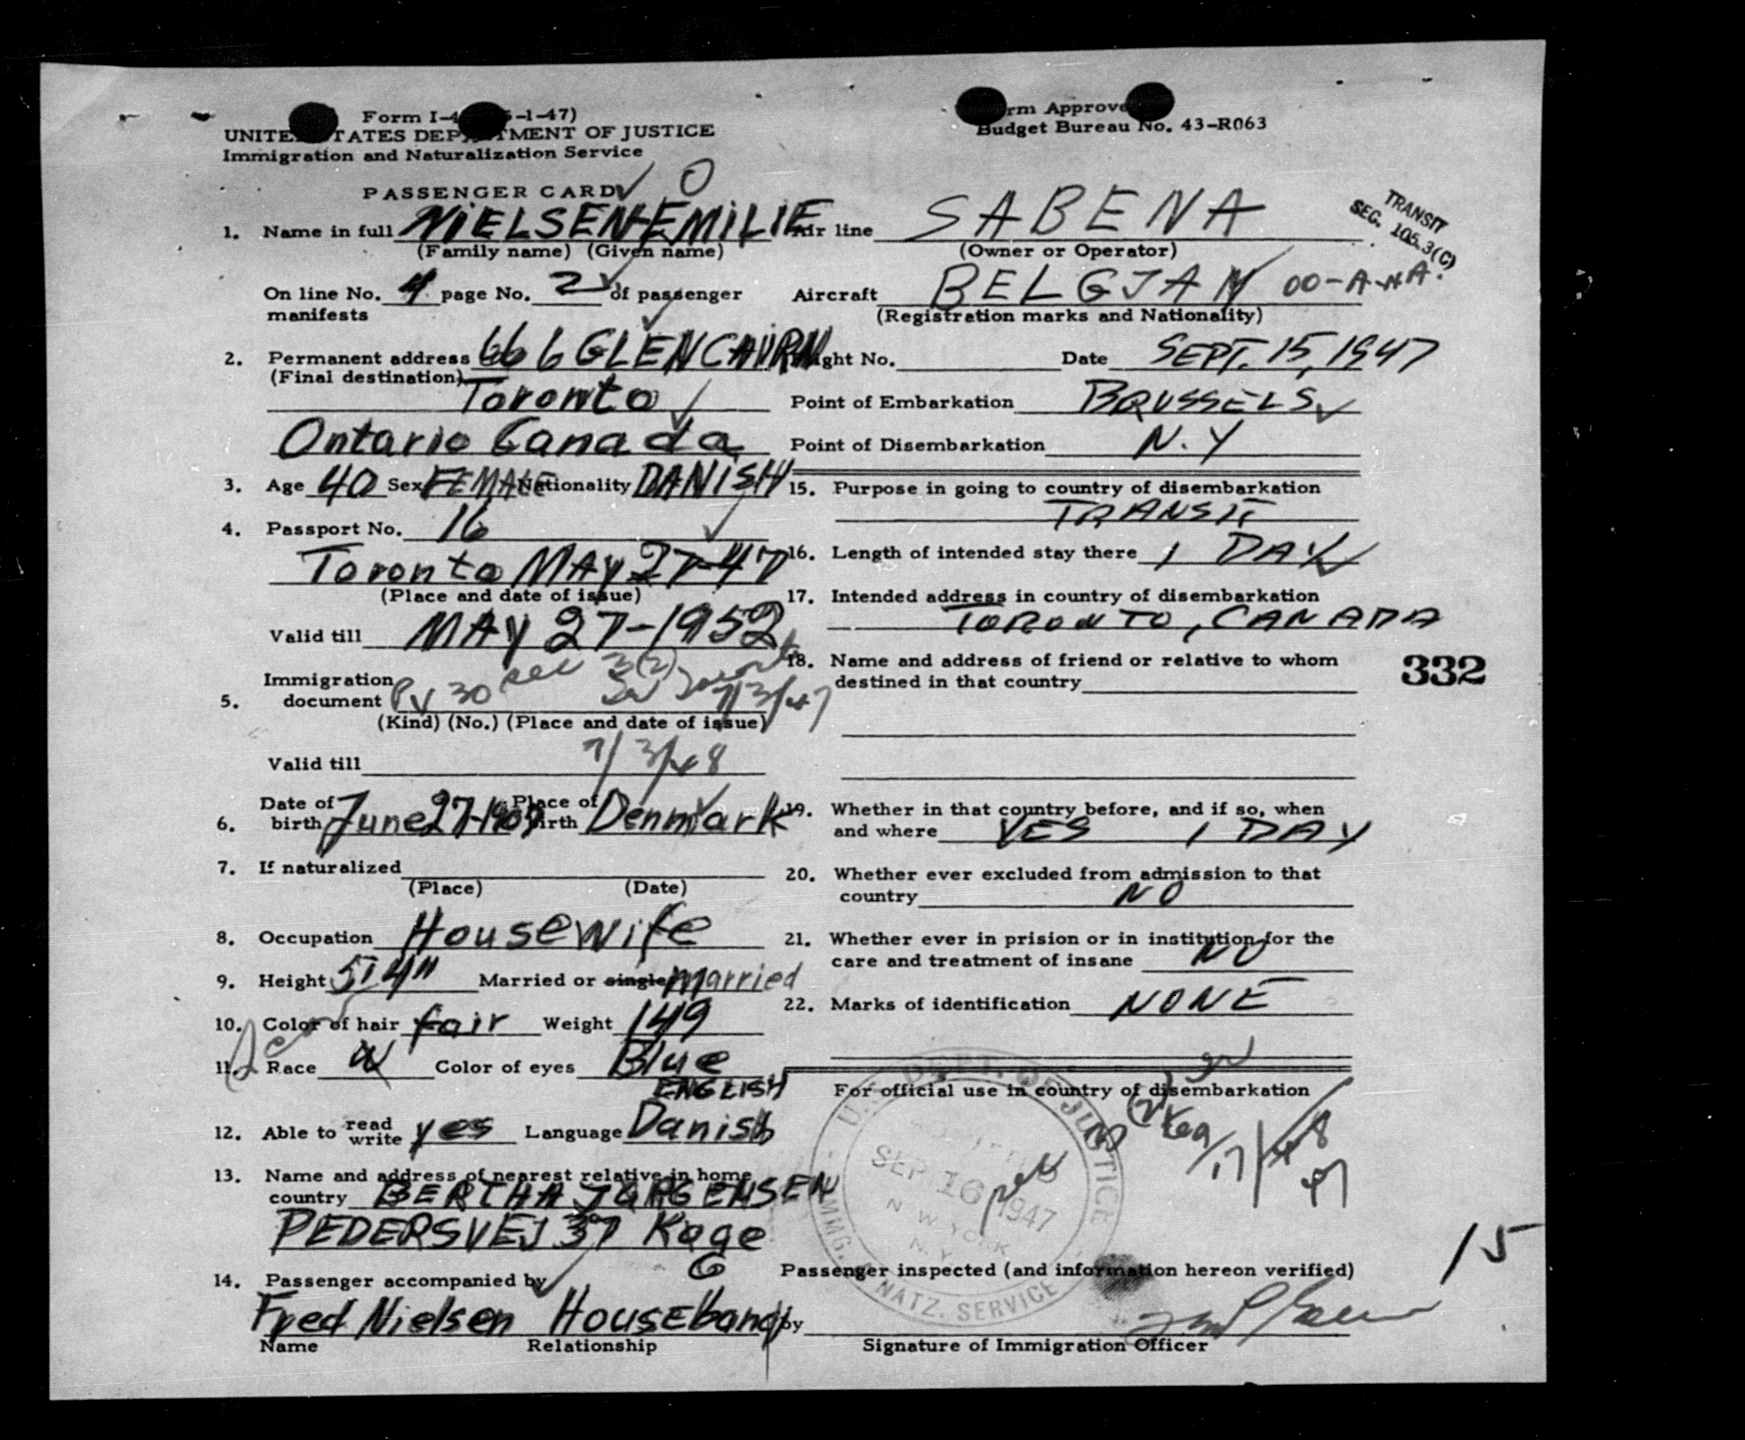 Form I-4 -1-47)
UNITE TATES DEP TMENT OF JUSTICE
Immigration and Naturalization Service
PASSENGER CARD 0
1. Name in full NIELSEN-EMILIE
(Family name) (Given name)
On line No. 4 page No. 2 of passenger
manifests
2. Permanent address 666 GLENCAIRN
(Final destination)
Toronto
Ontario Canada
3. Age 40 Sex FEMALE Nationality DANISH
4. Passport No. 16
Toronto MAY 27-47
(Place and date of issue)
Valid till MAY 27-1952
Immigration sec 3(2)
5. document PV 30 Toronto 7/3/47
(Kind) (No.) (Place and date of issue)
Valid till 7/3/48
Date of Place of
6. birth June 27-1907 birth Denmark
7. If naturalized
(Place) (Date)
8. Occupation Housewife
9. Height 5'4" Married or single married
10. Color of hair fair Weight 149
11. Race W Color of eyes Blue
ENGLISH
12. Able to read write yes Language Danish
13. Name and address of nearest relative in home
country BERTHA JORGENSEN
PEDERSVEJ 37 Koge
14. Passenger accompanied by
Fred Nielsen Houseband
Name Relationship
rm Approve
Budget Bureau No. 43-R063
Air line SABENA
(Owner or Operator)
TRANSIT
SEC. 105.3(C)
Aircraft BELGJAN OO-A-
(Registration marks and Nationality)
Flight No. Date SEPT. 15, 1947
Point of Embarkation BRUSSELS
Point of Disembarkation N.Y
15. Purpose in going to country of disembarkation
TRANSIT
16. Length of intended stay there 1 DAY
17. Intended address in country of disembarkation
TORONTO, CANADA
18. Name and address of friend or relative to whom
destined in that country
332
19. Whether in that country before, and if so, when
and where YES 1 DAY
20. Whether ever excluded from admission to that
country NO
21. Whether ever in prision or in institution for the
care and treatment of insane NO
22. Marks of identification NONE
For official use in country of disembarkation
U.S. DEPT. OF JUSTICE
SEP 16 1947
NEW YORK
N.Y.
IMMG. & NATZ. SERVICE
15
Passenger inspected (and information hereon verified)
by
Signature of Immigration Officer